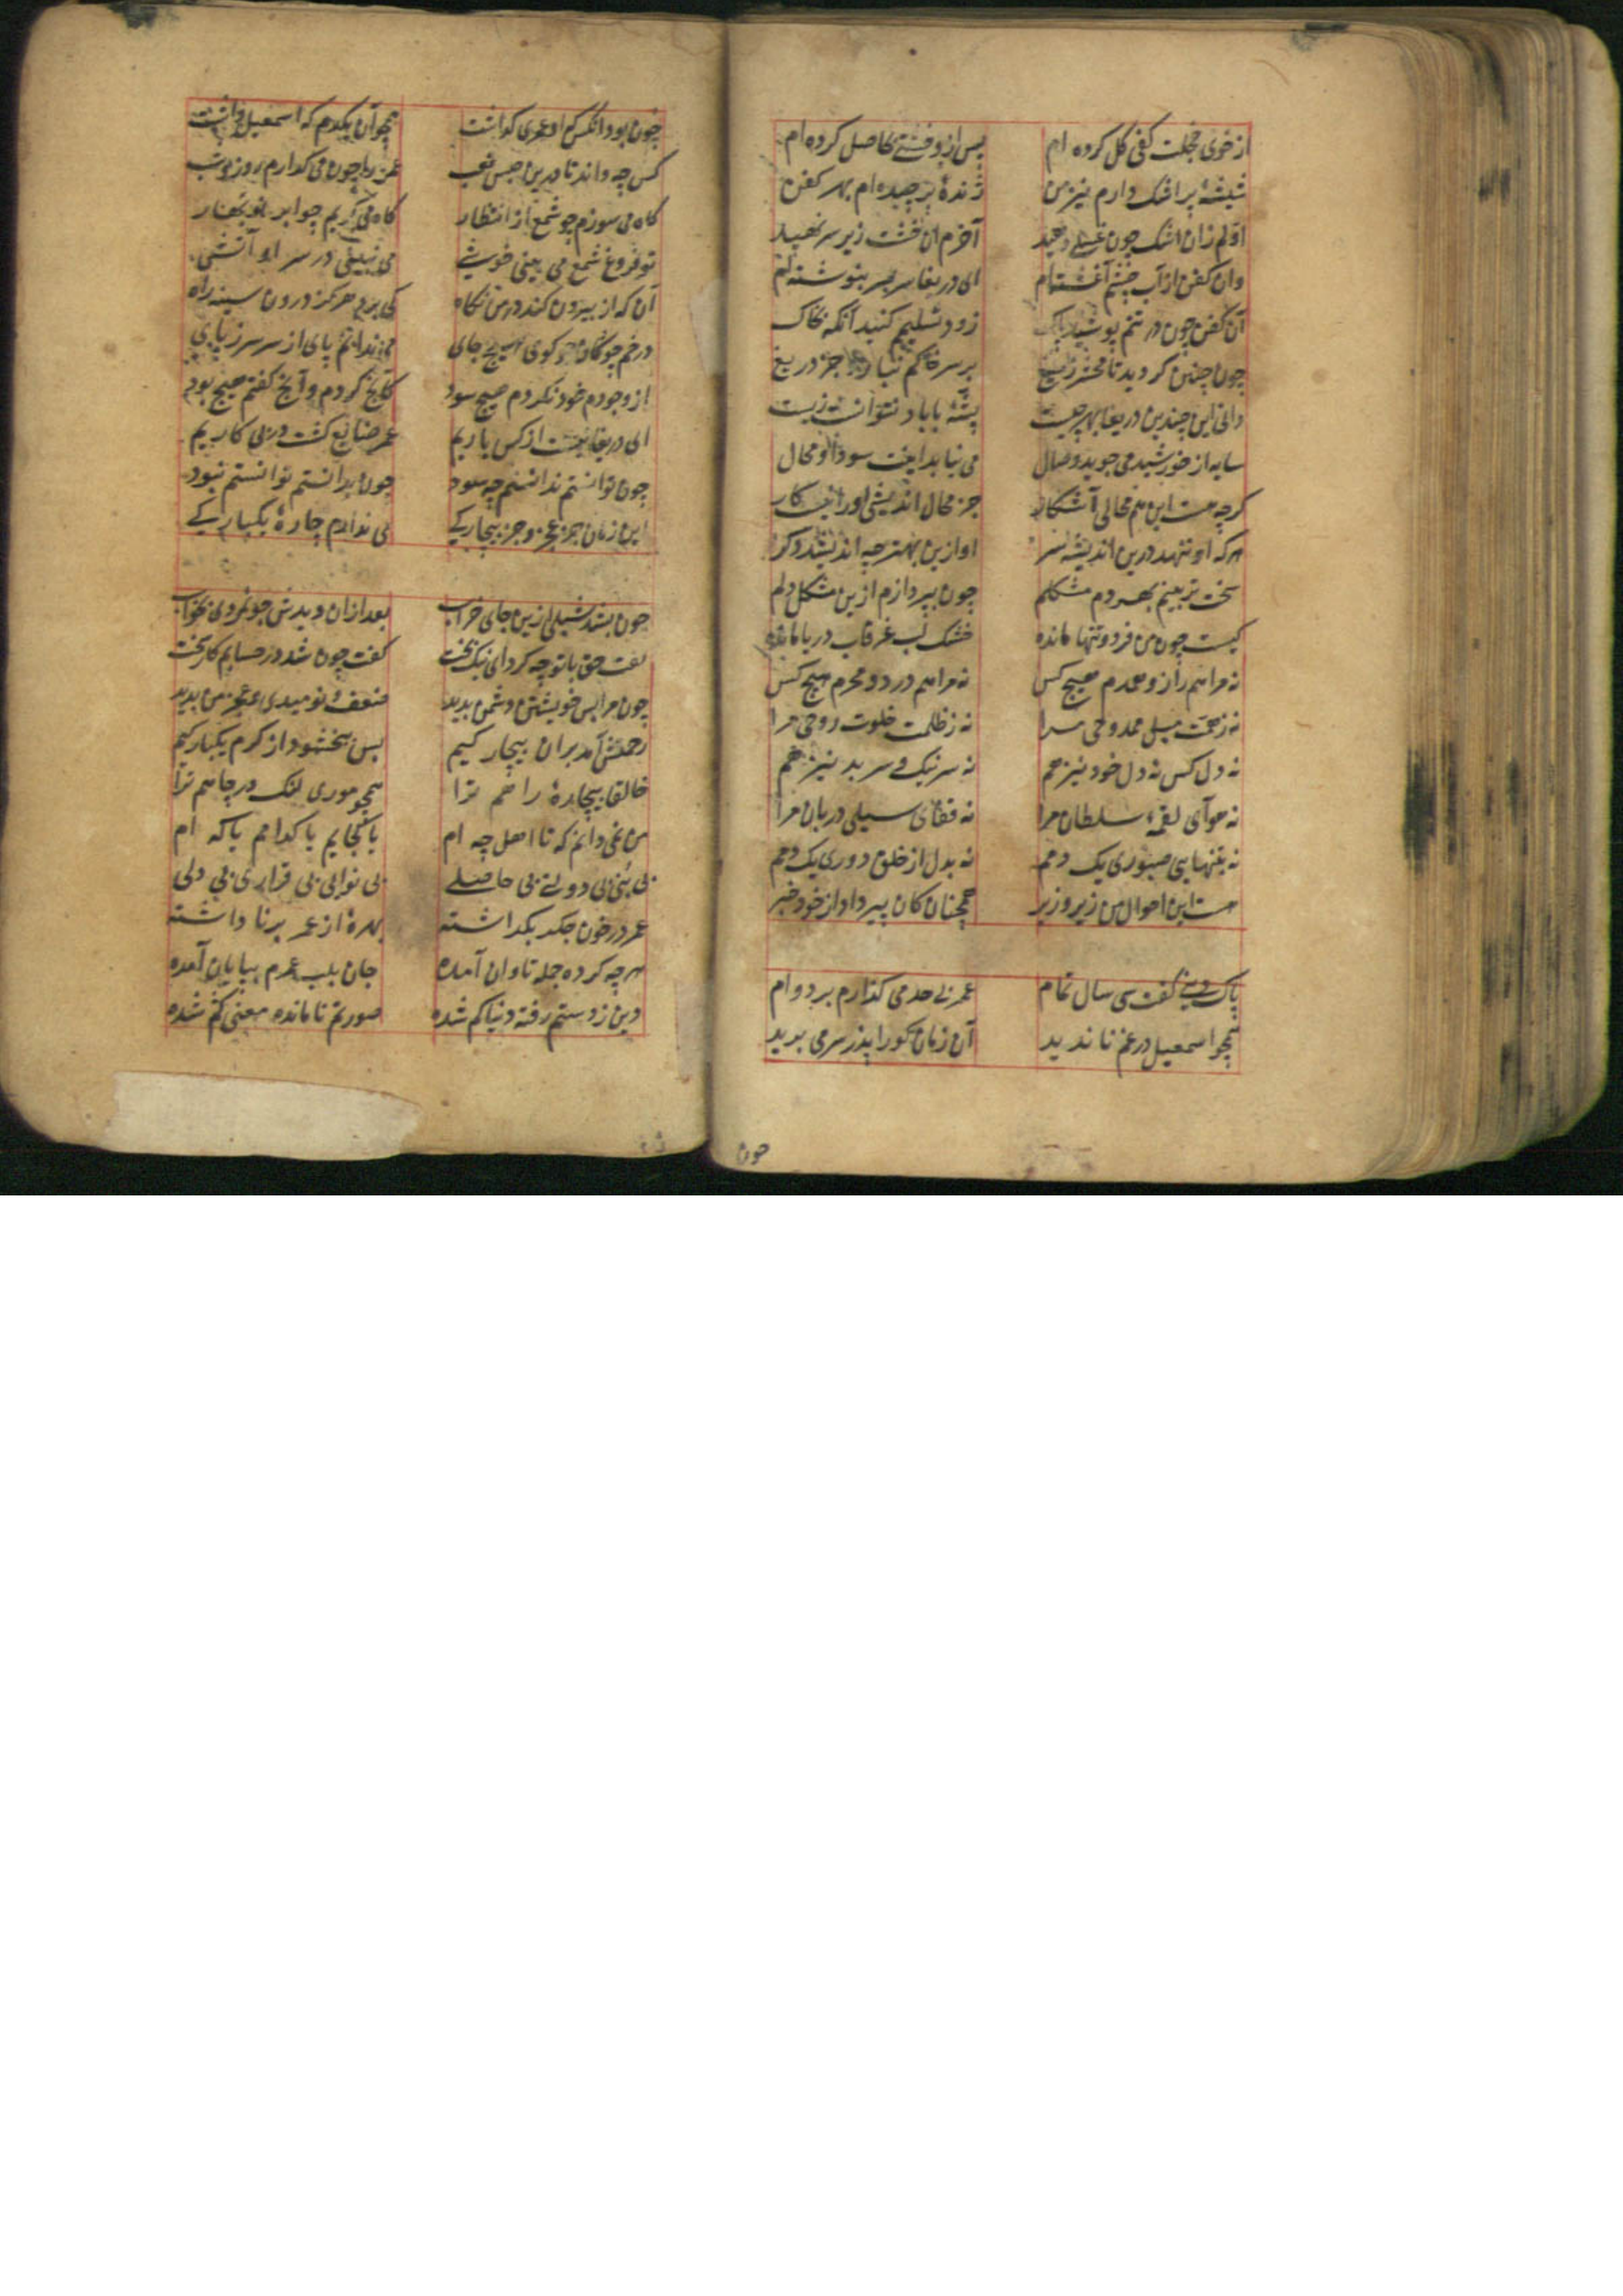 از خوی خجلت کفی گل کرده ام پس ازو خشتی حاصل کرده ام
شیشهٔ پر اشک دارم نیز من ژندهٔ بر چیده ام بهر کفن
اولم زان اشک چون غسلی دهید آخرم ان خشت زیر سر نهید
وان کفن از آب چشم آغشته ام ای دریغا سر بسر بنوشته ام
آن کفن چون در تنم پوشید پاک زود تسلیم کنید آنگه بخاک
چون چنین کردید تا محشر ز میغ بر سر خاکم نبارد جز دریغ
دانی این چندین دریغا بهر چیست پشهٔ با باد نتوانست زیست
سایه از خورشید می جوید وصال می نیابد اینت سودا و محال
گرچه هست این هم محالی آشکار جز محال اندیشی او را نیست کار
هر که او ننهد درین اندیشه سر او ازین بهتر چه اندیشد دگر
سخت تر بینم بهر دم مشکلم چون بپردازم ازین مشکل دلم
کیست چون من فرد و تنها مانده خشک لب غرقاب دریا مانده
نه مرا همراز و همدم هیچ کس نه مرا همدرد و محرم هیچ کس
نه ز همت میل ممدوحی مرا نه ز ظلمت خلوت روحی مرا
نه دل کس نه دل خود نیز هم نه سر نیک و سر بد نیز هم
نه هوای لقمهٔ سلطان مرا نه قفای سیلی دربان مرا
نه بتنهایی صبوری یک دمم نه بدل از خلق دوری یک دمم
هست این احوال من زیر و زبر همچنان کان پیر داد از خود خبر
پاک دینی گفت سی سال تمام عمر بی حد می گذارم بر دوام
همچو اسمعیل در غم ناپدید آن زمان کورا پدر سر می برید
چون
چون بود آنکس که او عمری گذاشت همچو آن یکدم که اسمعیل داشت
کس چه داند تا درین حبس تعب عمر را چون می گذارم روز و شب
گاه می سوزم چو شمع از انتظار گاه می گریم چو ابر نوبهار
تو فروغ شمع می بینی خوشی می نبینی در سر او آتشی
آن که از بیرون کند در من نگاه کی برد هرگز درون سینه راه
در خم چوگان چو گوی هیچ جای می ندانم پای از سر سر ز پای
از وجودم خود نکردم هیچ سود کانچ کردم و آنچ گفتم هیچ بود
ای دریغا نیست از کس یاریم عمر ضایع گشت در بی کاریم
چون توانستم ندانستم چه سود چون بدانستم توانستم نبود
این زمان جز عجز و جز بیچارگی می ندارم چارهٔ یکبارگی
چون بشد شبلی ازین جای خراب بعد ازان دیدش جوانمردی بخواب
گفت حق با تو چه کرد ای نیک بخت گفت چون شد در حسابم کار سخت
چون مرا بس خویشتن دشمن بدید ضعف و نومیدی و عجز من بدید
رحمتش آمد بران بیچارگیم پس ببخشود از کرم یکبارگیم
خالقا بیچارهٔ راهم ترا همچو موری لنگ در چاهم ترا
من نمی دانم که تا اهل چه ام یا کجایم یا کدامم یا که ام
بی تنی بی دولتی بی حاصلی بی نوایی بی قراری بی دلی
عمر در خون جگر بگذاشته بهرهٔ از عمر برناداشته
هر چه کرده جمله تاوان آمده جان بلب عمرم بپایان آمده
دین ز دستم رفته دنیا گم شده صورتم نامانده معنی گم شده